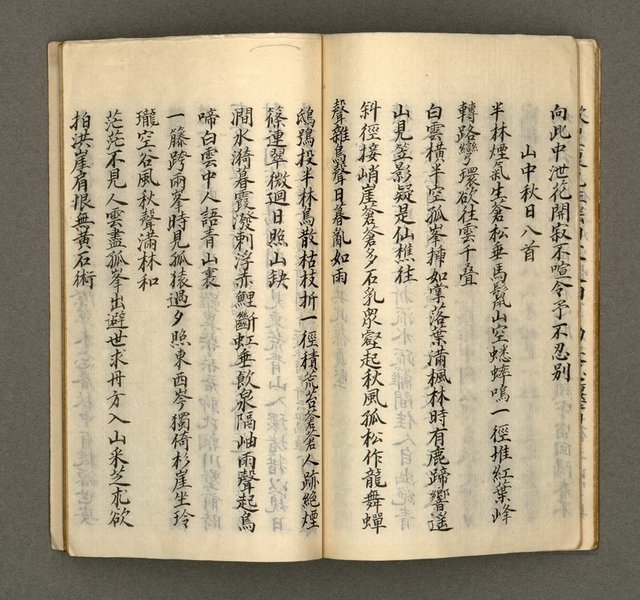 向此中泄花開寂不喧令予不忍別
山中秋日八首
半林煙氣生蒼松垂馬鬛山空蟋蟀鳴一徑堆紅葉峰
轉路彎環欲往雲千叠
白雲橫半空孤峯挿如掌落葉滿楓林時有鹿蹄響遙
山見笠影疑是仙樵往
斜徑接峭崖蒼蒼多石乳衆壑起秋風孤松作龍舞蟬
聲雜鳥聲日暮亂如雨
鴟鴞投半林鳥散枯枝折一徑積荒苔蒼蒼人跡絕煙
篠連翠微迴日照山缺
澗水漪暮霞潑剌浮赤鯉斷虹垂飲泉隔岫雨聲起鳥
啼白雲中人語青山裏
一籐跨兩峯時見孤猿過夕照東西岑獨倚杉崖坐玲
瓏空谷風秋聲滿林和
茫茫不見人雲盡孤峯出避世求丹方入山采芝朮欲
拍洪崖肩恨無黃石術